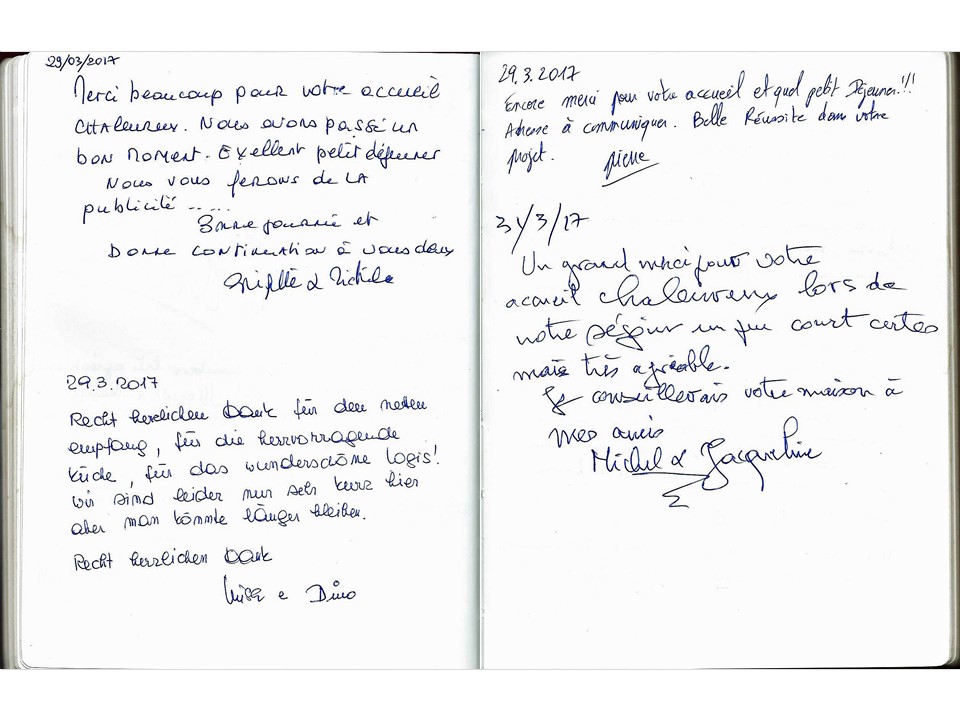 29/03/2017
Merci beaucoup pour votre accueil
CHALeureux. Nous avons passé un
bon moment. Exellent petit déjeuner
Nous vous ferons de LA
publicité .....
Bonne journée et
Bonne continuation à vous deux
& Michele
29.3.2017
Recht herzlichen Dank für den netten
empfang, für die hervorragende
Küche, für das wunderschöne logis!
wir sind leider nur sehr kurz hier
aber man könnte länger bleiben.
Recht herzlichen Dank
Luisa e Dino
29.3.2017
Encore merci pour votre accueil et quel petit Déjeuner!!!
Adresse à communiquer. Belle Réussite dans votre
projet. Pierre
31/3/17
Un grand merci pour votre
accueil chaleureux lors de
notre séjour un peu court certes
mais très agréable.
Je conseillerais votre maison à
mes amis
Michel & Jacqueline